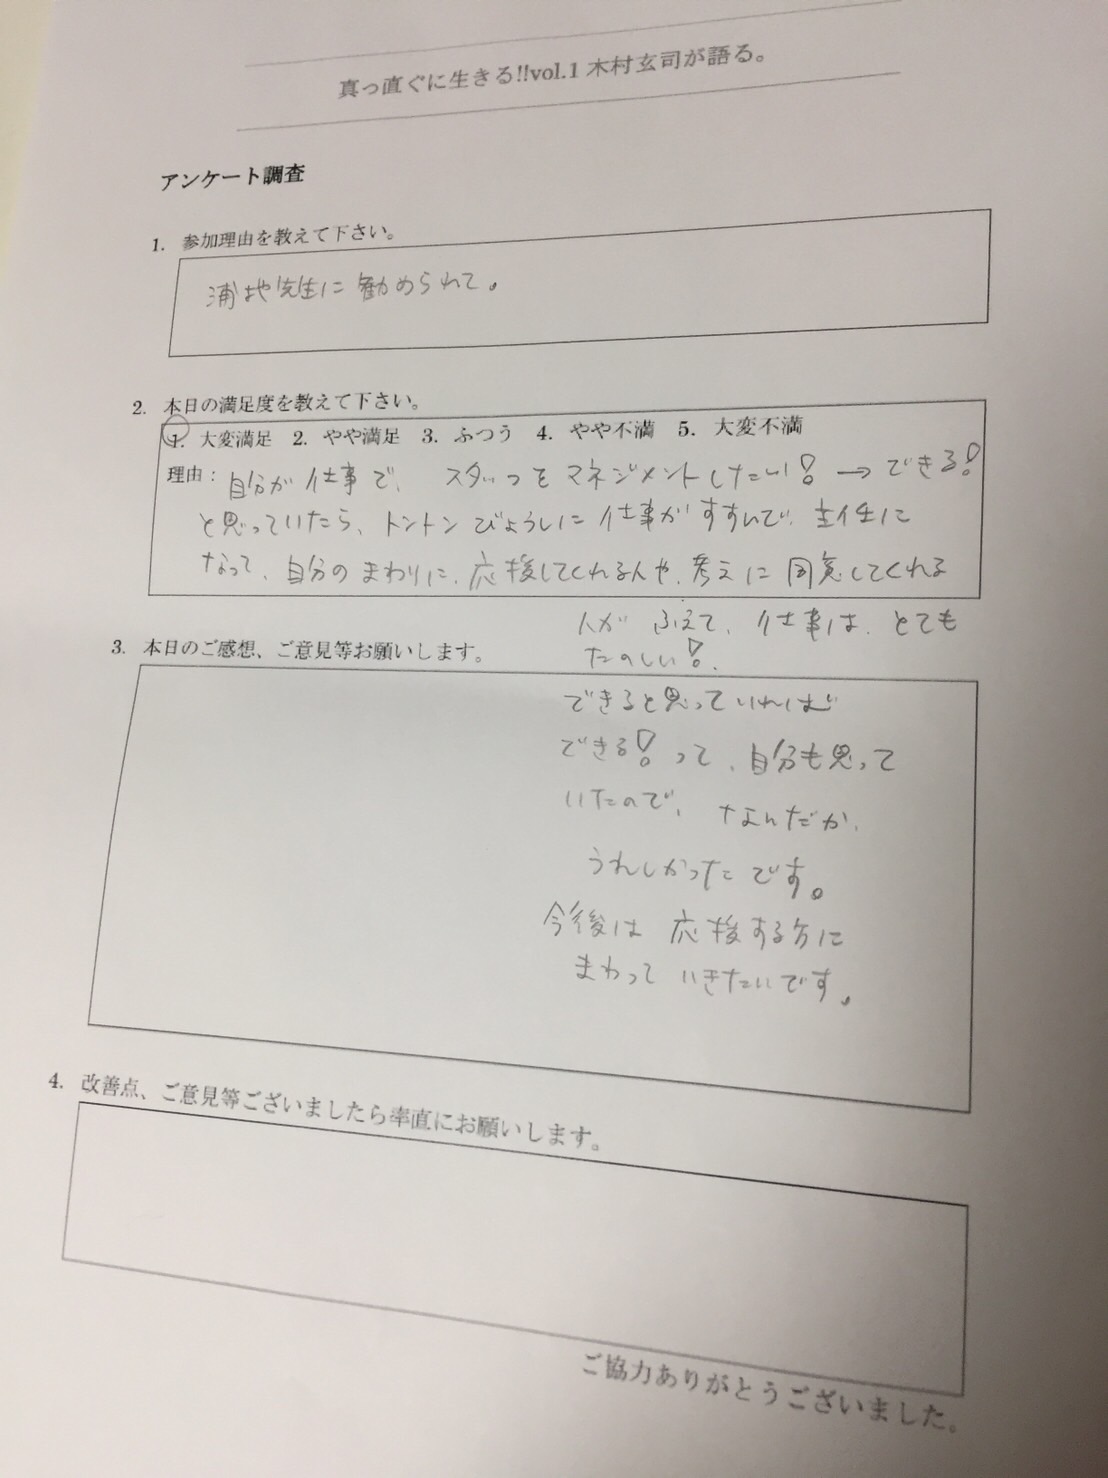 真っ直ぐに生きる!!vol.1 木村玄司が語る。
アンケート調査
1. 参加理由を教えて下さい。
浦地先生に勧められて。
2. 本日の満足度を教えて下さい。
1. 大変満足 2. やや満足 3. ふつう 4. やや不満 5. 大変不満
理由：自分が仕事で、スタッフをマネジメントしたい! → できる!
と思っていたら、トントンびょうしに仕事がすすんで、主任に
なって、自分のまわりに、応援してくれる人や、考えに同意してくれる
人が ふえて、仕事は、とても
たのしい!
3. 本日のご感想、ご意見等お願いします。
できると思っていれば
できる! って、自分も思って
いたので、なんだか、
うれしかったです。
今後は 応援する方に
まわって いきたいです。
4. 改善点、ご意見等ございましたら率直にお願いします。
ご協力ありがとうございました。